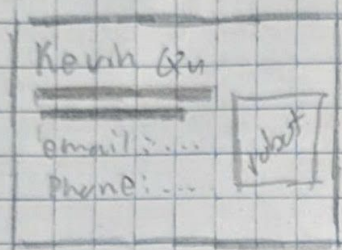 Kevin Qu
email:...
phone:...
robot